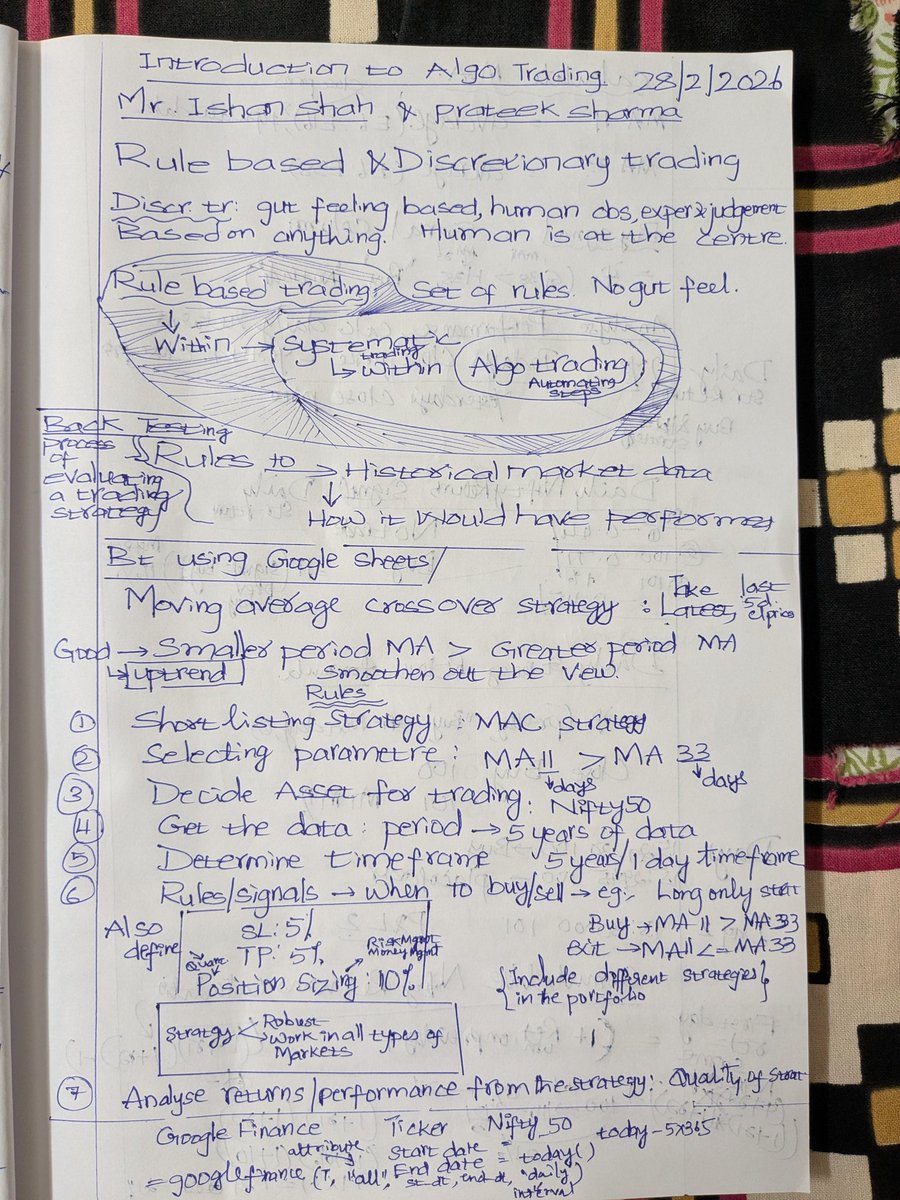 Introduction to Algo Trading 28/2/2026
Mr. Ishan Shah & Prateek Sharma
Rule based & Discretionary trading
Discr. tr: gut feeling based, human obs, exper & judgement
Based on anything. Human is at the centre.
Rule based trading: Set of rules. No gut feel.
Within → Systematic
trading
↳ within
Algo trading
Automating
steps
Back Testing
process
of
evaluating
a trading
strategy
Rules to → Historical market data
↓
How it would have performed
Bt using Google Sheets
Moving average crossover strategy : Take last
Latest, 5d
cl price
Good → Smaller period MA > Greater period MA
↳ uptrend Smoothen out the view.
Rules
① Short listing Strategy : MAC strategy
② Selecting parametre : MA11 > MA 33
↓days ↓days
③ Decide Asset for trading : Nifty50
④ Get the data : period → 5 years of data
⑤ Determine timeframe 5 years/1 day timeframe
⑥ Rules/signals → when to buy/sell → eg:- Long only strat
Also
define
SL: 5%
TP: 5%
Quant
↓
Position Sizing : 10%
Risk Mgmt
Money Mgmt
Buy → MA 11 > MA 33
Exit → MA11 <= MA33
{Include different strategies
in the portfolio}
Stratgy < Robust
Work in all types of
Markets
⑦ Analyse returns/performance from the strategy: Quality of Strat
Google Finance Ticker Nifty_50
attribute Start date = today - 5x365
End date = today()
=googlefinance (T, "all", st dt, end dt, "daily"
interval)